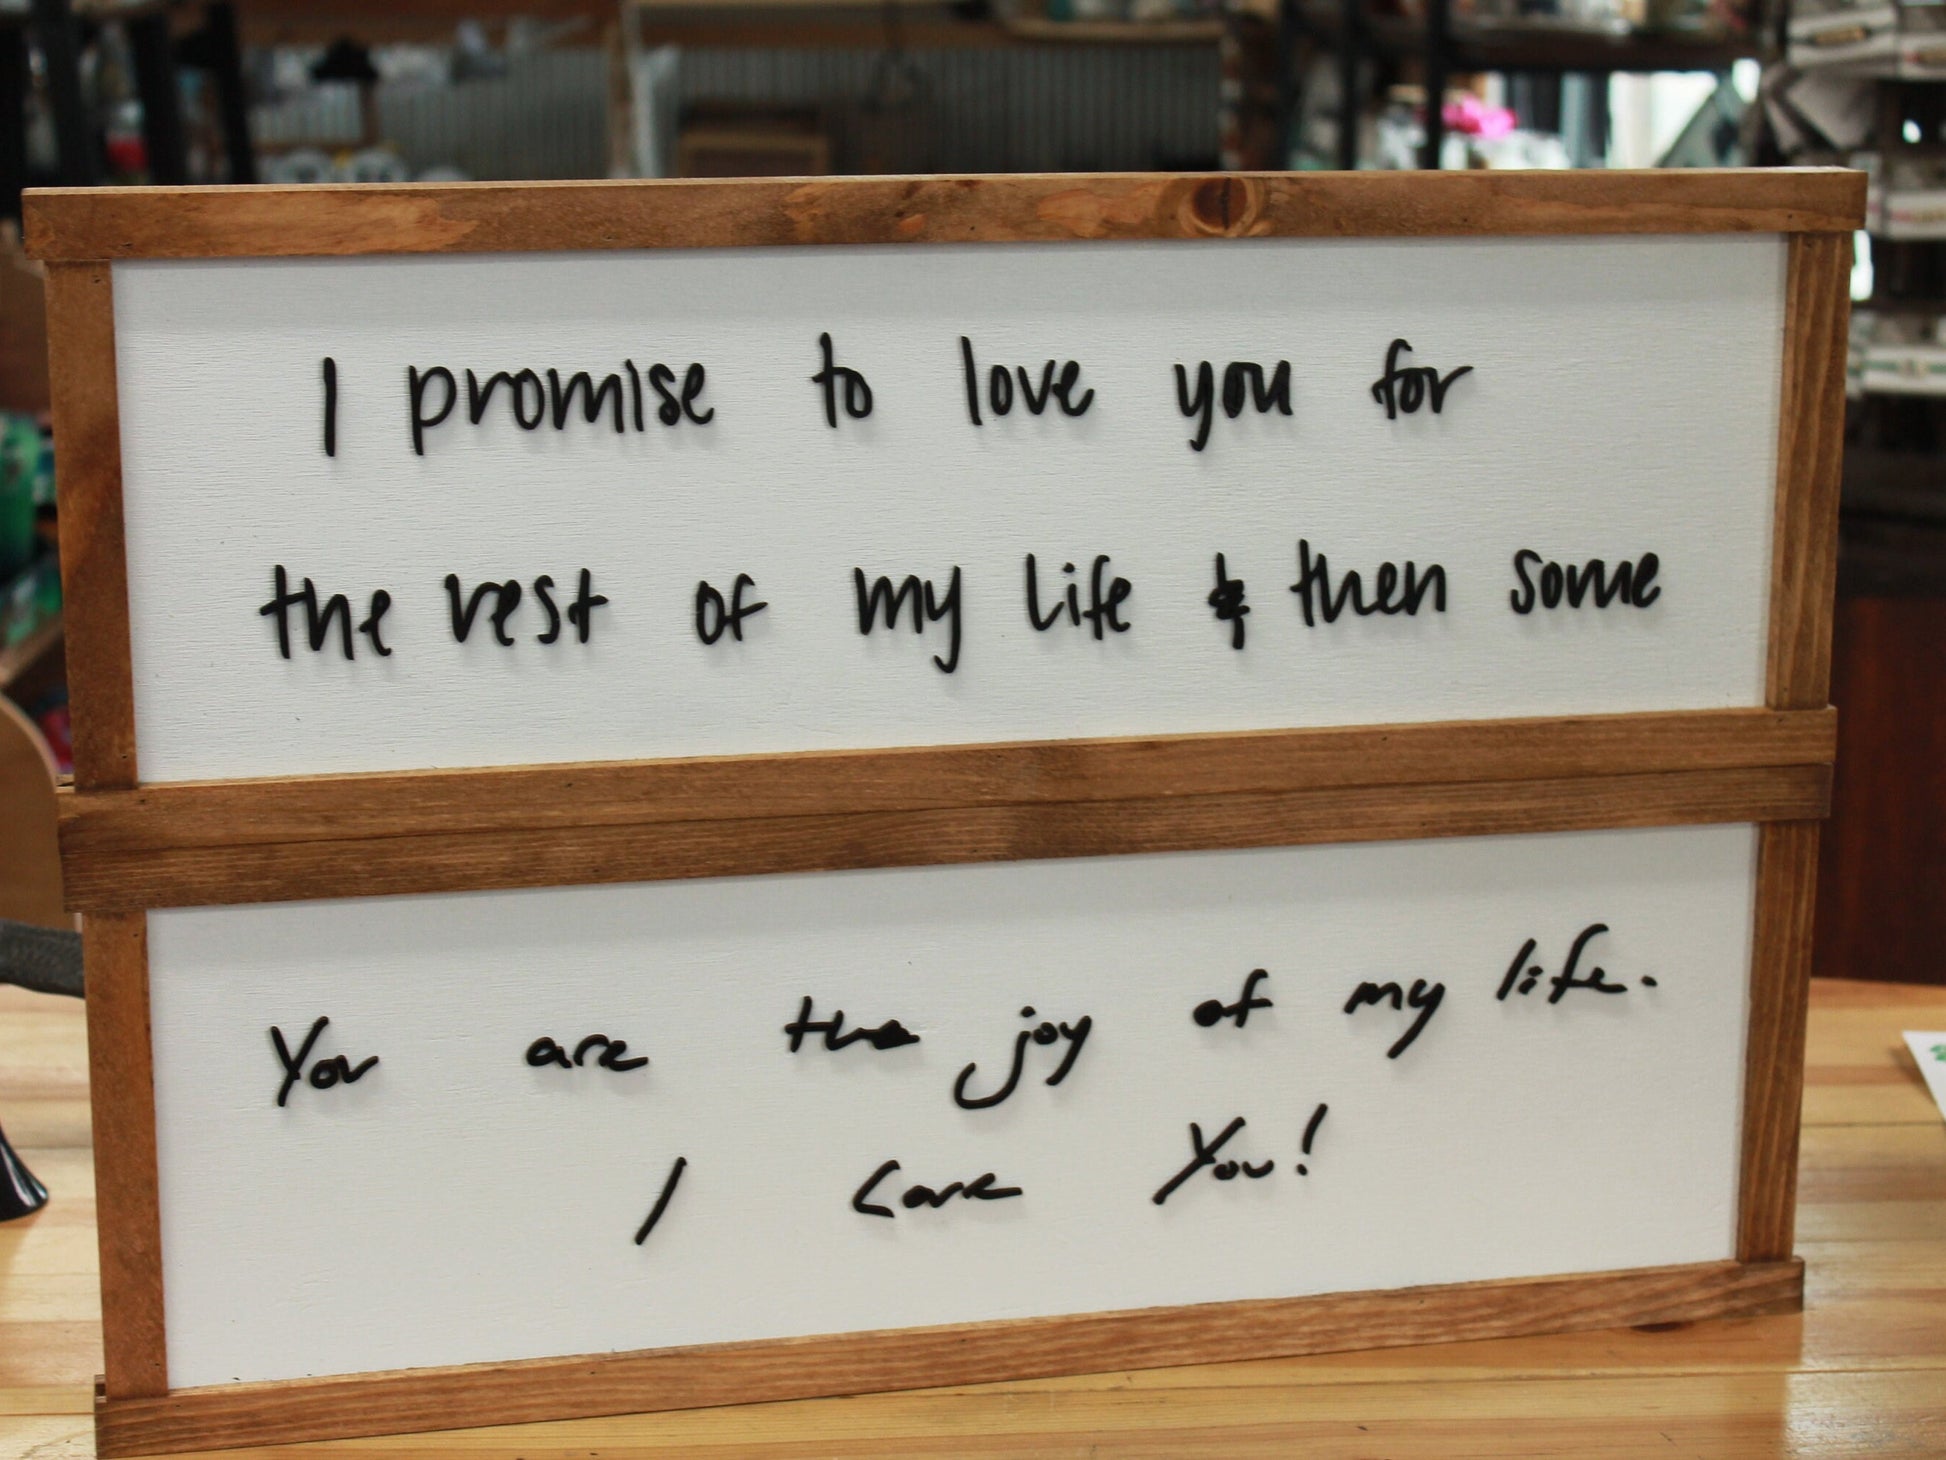 I promise to love you for
the rest of my life & then some
You are the joy of my life.
I care You!